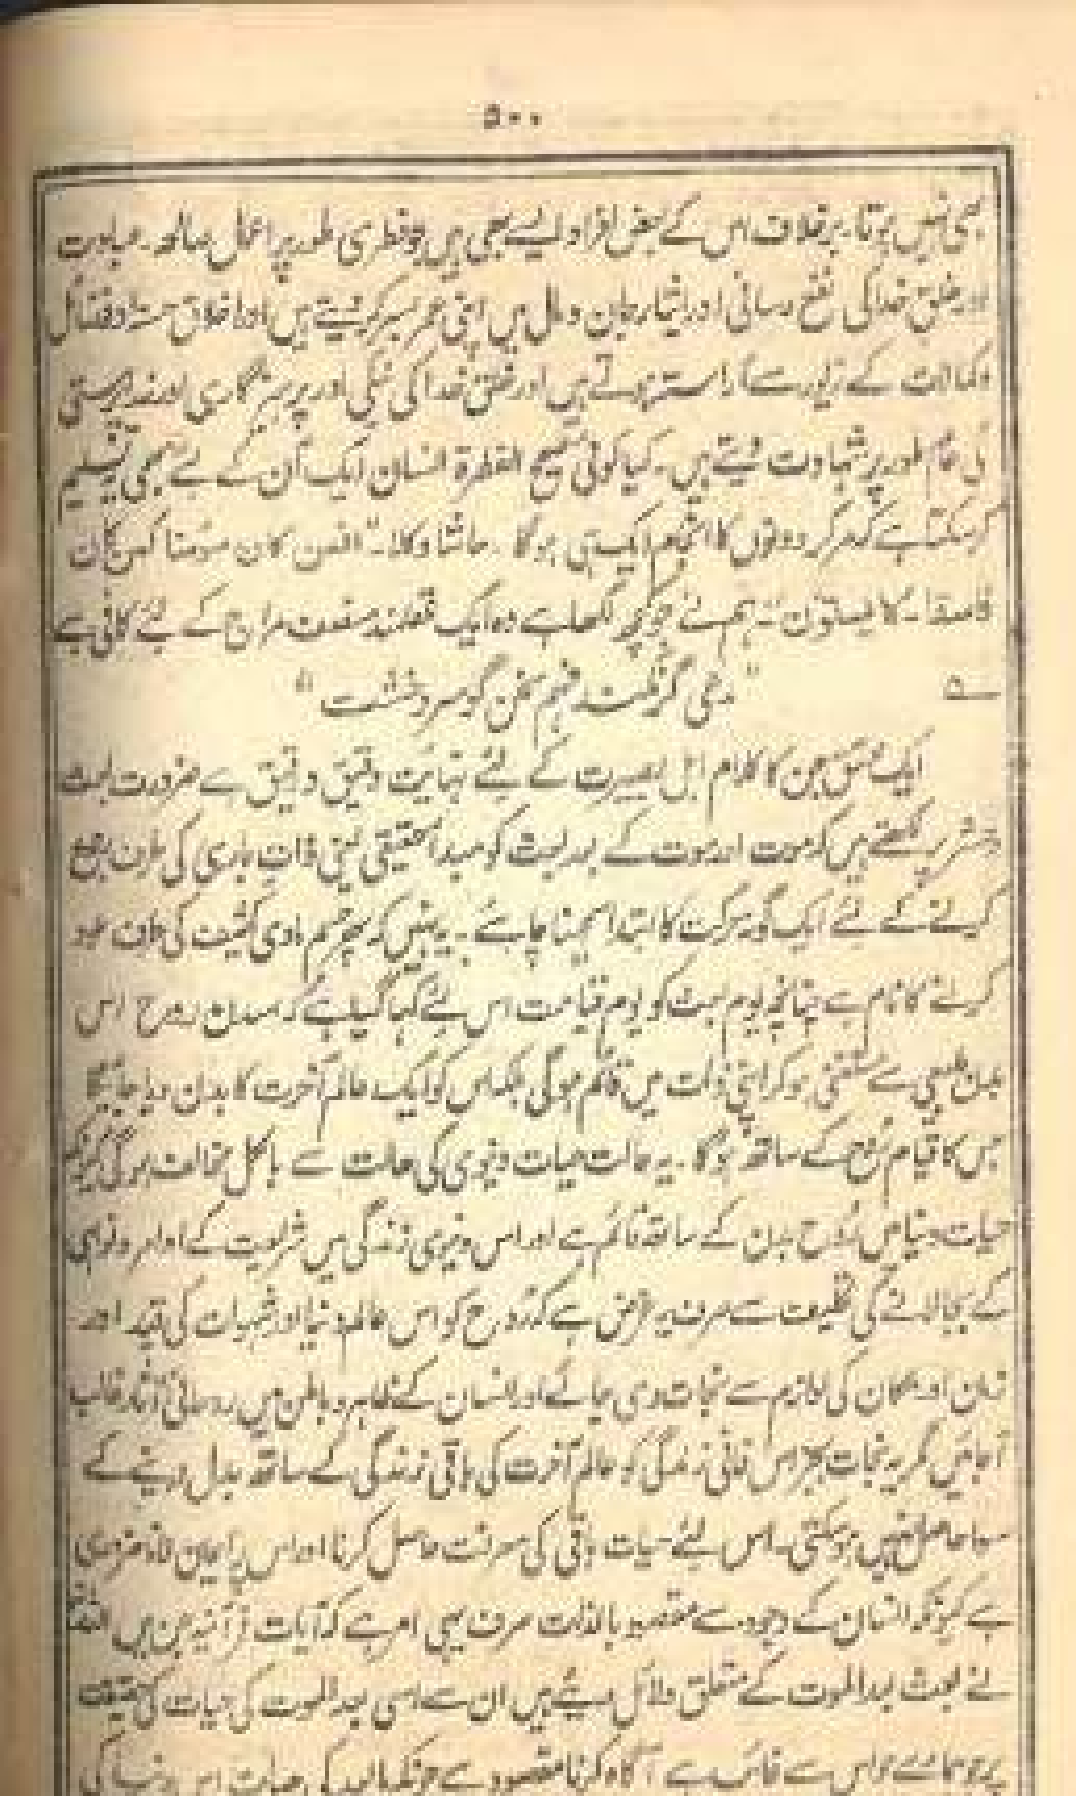 ۵۰۰
بھی نہیں ہوتا۔ برخلاف اس کے بعض افراد ایسے بھی ہیں جو فطری طور پر اعمال صالحہ۔ عبادت
اور خلق خدا کی نفع رسانی اور ایثار جان و مال میں اپنی عمر بسر کر دیتے ہیں اور اخلاق حسنہ و فضائل
و کمالات کے زیور سے آراستہ ہوتے ہیں اور خلق خدا کی نیکی اور پرہیزگاری اور خدا پرستی
کی عام طور پر شہادت دیتے ہیں۔ کیا کوئی صحیح الفطرۃ انسان ایک آن کے لئے بھی یہ تسلیم
کر سکتا ہے کہ مر کر دونوں کا انجام ایک ہی ہوگا۔ حاشا وکلا۔ "افمن کان مومنا کمن کان
فاسقا۔ لا یستوون"۔ ہم نے جو کچھ لکھا ہے وہ ایک عقلمند منصف مزاج کے لئے کافی ہے
؎ "مدعی گر نکند فہم سخن گو سر و خشت"
ایک محقق جن کا کلام اہل بصیرت کے لئے نہایت دقیق و انیق ہے ضرورت بعث
و نشر پر لکھتے ہیں کہ موت اور موت کے بعد بعث کو مبدا حقیقی یعنی ذات باری کی طرف رجوع
کرنے کے لئے ایک گونہ حرکت کا ابتدا سمجھنا چاہئے۔ یہ نہیں کہ پھر جسم مادی کثیف کی طرف عود
کرنے کا نام ہے چنانچہ یوم بعث کو یوم قیامت اس لئے کہا گیا ہے کہ اس دن روح اس
بدن طبعی سے مستغنی ہو کر اپنی ذات میں قائم ہوگی بلکہ اس کو ایک عالم آخرت کا بدن دیا جائیگا
جس کا قیام روح کے ساتھ ہوگا۔ یہ حالت حیات دنیوی کی حالت سے بالکل مخالف ہوگی کیونکہ
حیات دنیا میں روح بدن کے ساتھ قائم ہے اور اس دنیوی زندگی میں شریعت کے اوامر و نواہی
کے بجا لانے کی تکلیف سے صرف یہ غرض ہے کہ روح کو اس عالم دنیا اور شہوات کی قید اور
زمان اور مکان کی لوازم سے نجات دی جائے اور انسان کے ظاہر و باطن میں روحانی آثار غالب
آجائیں مگر یہ نجات بجز اس فانی زندگی کو عالم آخرت کی باقی زندگی کے ساتھ بدل دینے کے
سوا حاصل نہیں ہو سکتی۔ اس لئے حیات باقی کی معرفت حاصل کرنا اور اس پر ایمان لانا ضروری
ہے کیونکہ انسان کے وجود سے مقصود بالذات صرف یہی امر ہے کہ آیات قرآنیہ جن میں اللہ
نے بعث بعد الموت کے متعلق دلائل دیئے ہیں ان سے اسی بعد الموت کی حیات کی حقیقت
پر جو ہمارے حواس سے غائب ہے آگاہ کرنا مقصود ہے کیونکہ حیات اس دنیا کی